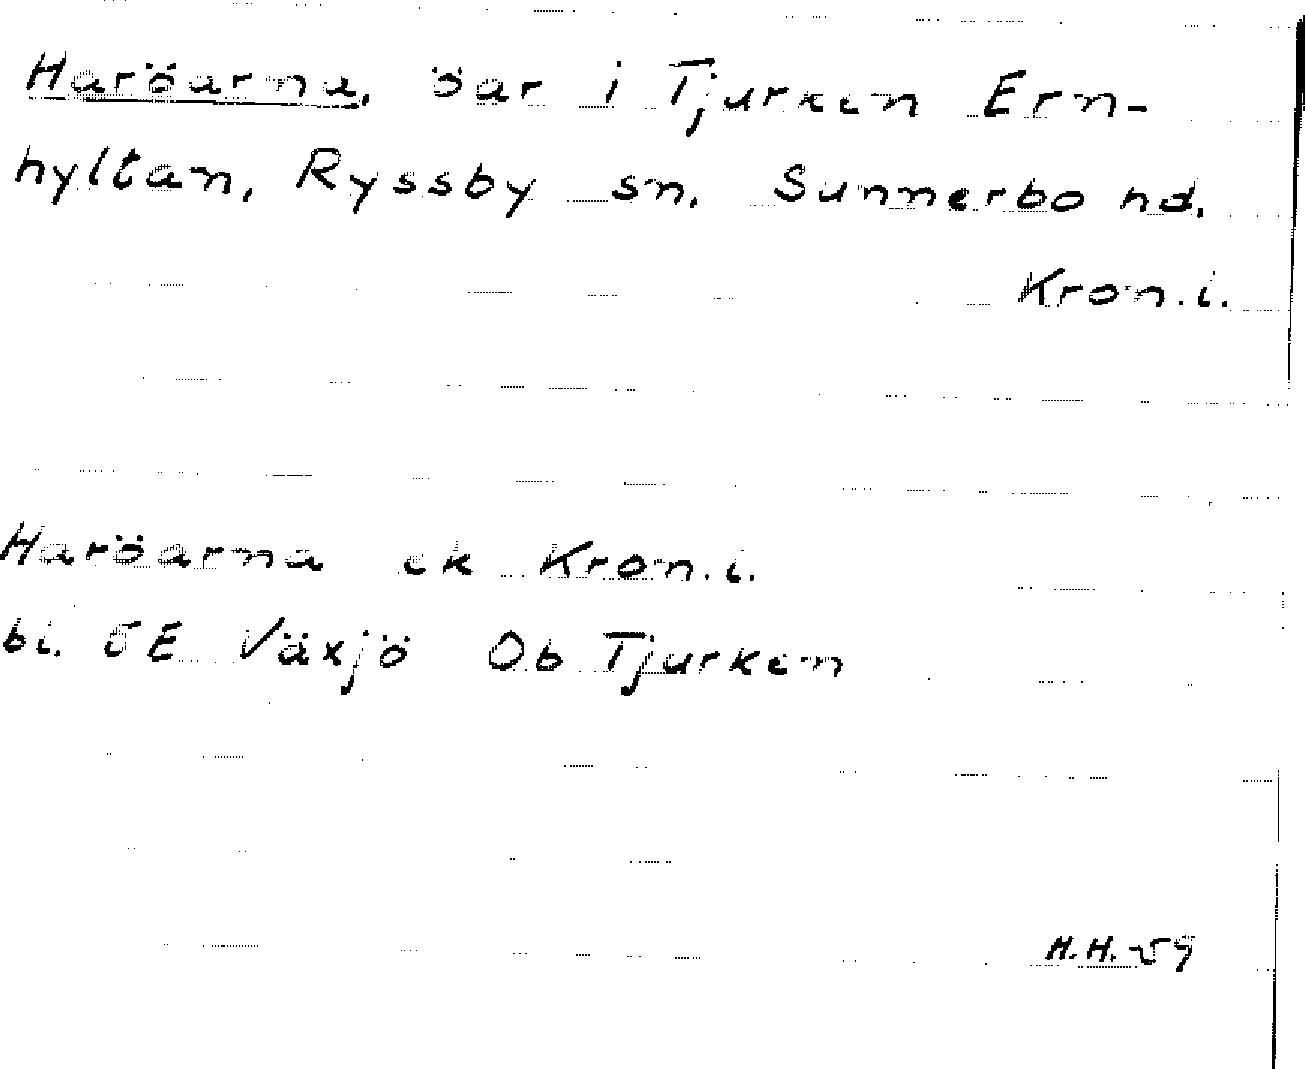 Haröarna, öar i Tjurken Ern-
hyltan, Ryssby sn. Sunnerbo hd.
Kron.i.
Haröarna ek Kron.i.
bl. 5E Växjö Ob Tjurken
H.H. -59